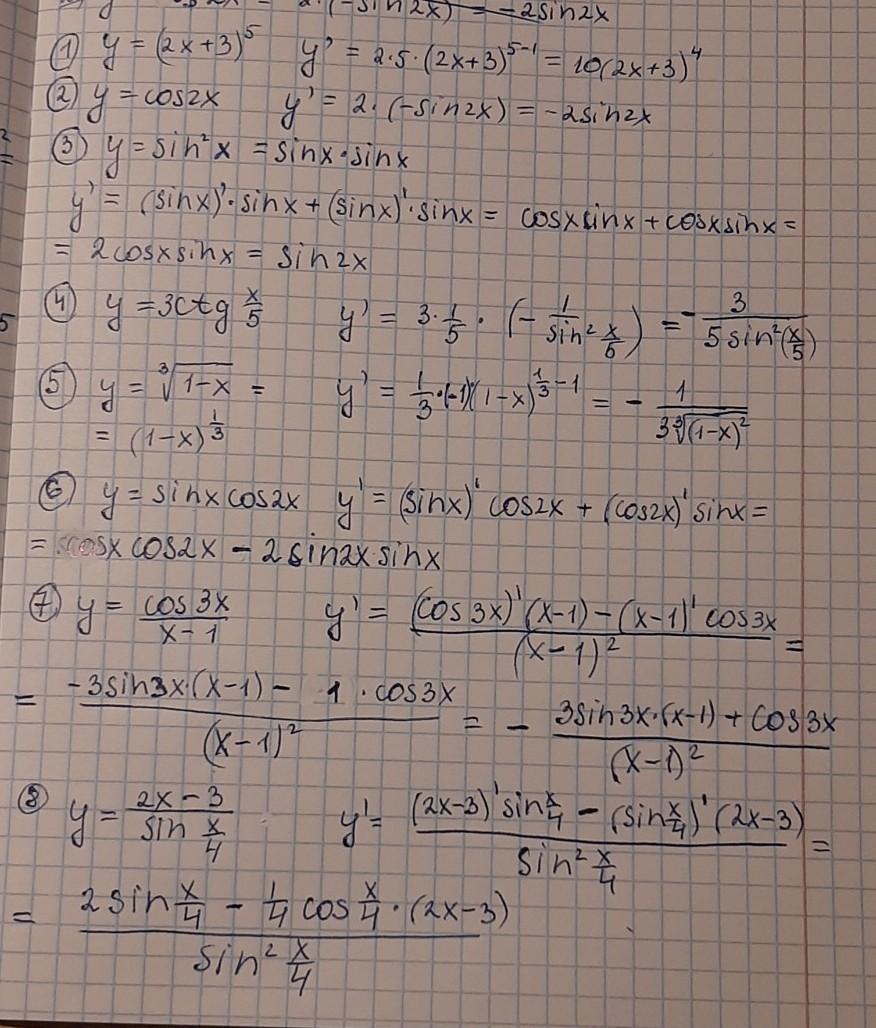 · (-sin2x) = -2sin2x
① y = (2x+3)⁵ y' = 2·5·(2x+3)⁵⁻¹ = 10(2x+3)⁴
② y = cos2x y' = 2·(-sin2x) = -2sin2x
③ y = sin²x = sinx·sinx
y' = (sinx)'·sinx + (sinx)'·sinx = cosxsinx + cosxsinx =
= 2cosxsinx = sin2x
④ y = 3ctg x/5 y' = 3·1/5·(-1/sin² x/5) = -3/5sin²(x/5)
⑤ y = ∛(1-x) = y' = 1/3·(-1)(1-x)^(1/3-1) = -1/3∛(1-x)²
= (1-x)^(1/3)
⑥ y = sinxcos2x y' = (sinx)'cos2x + (cos2x)'sinx =
= cosxcos2x - 2sin2x·sinx
⑦ y = cos3x/x-1 y' = (cos3x)'(x-1)-(x-1)'cos3x/(x-1)² =
= -3sin3x·(x-1)-1·cos3x/(x-1)² = -3sin3x·(x-1)+cos3x/(x-1)²
⑧ y = 2x-3/sin x/4 y' = (2x-3)'sin x/4 - (sin x/4)'(2x-3)/sin² x/4 =
= 2sin x/4 - 1/4 cos x/4·(2x-3)/sin² x/4